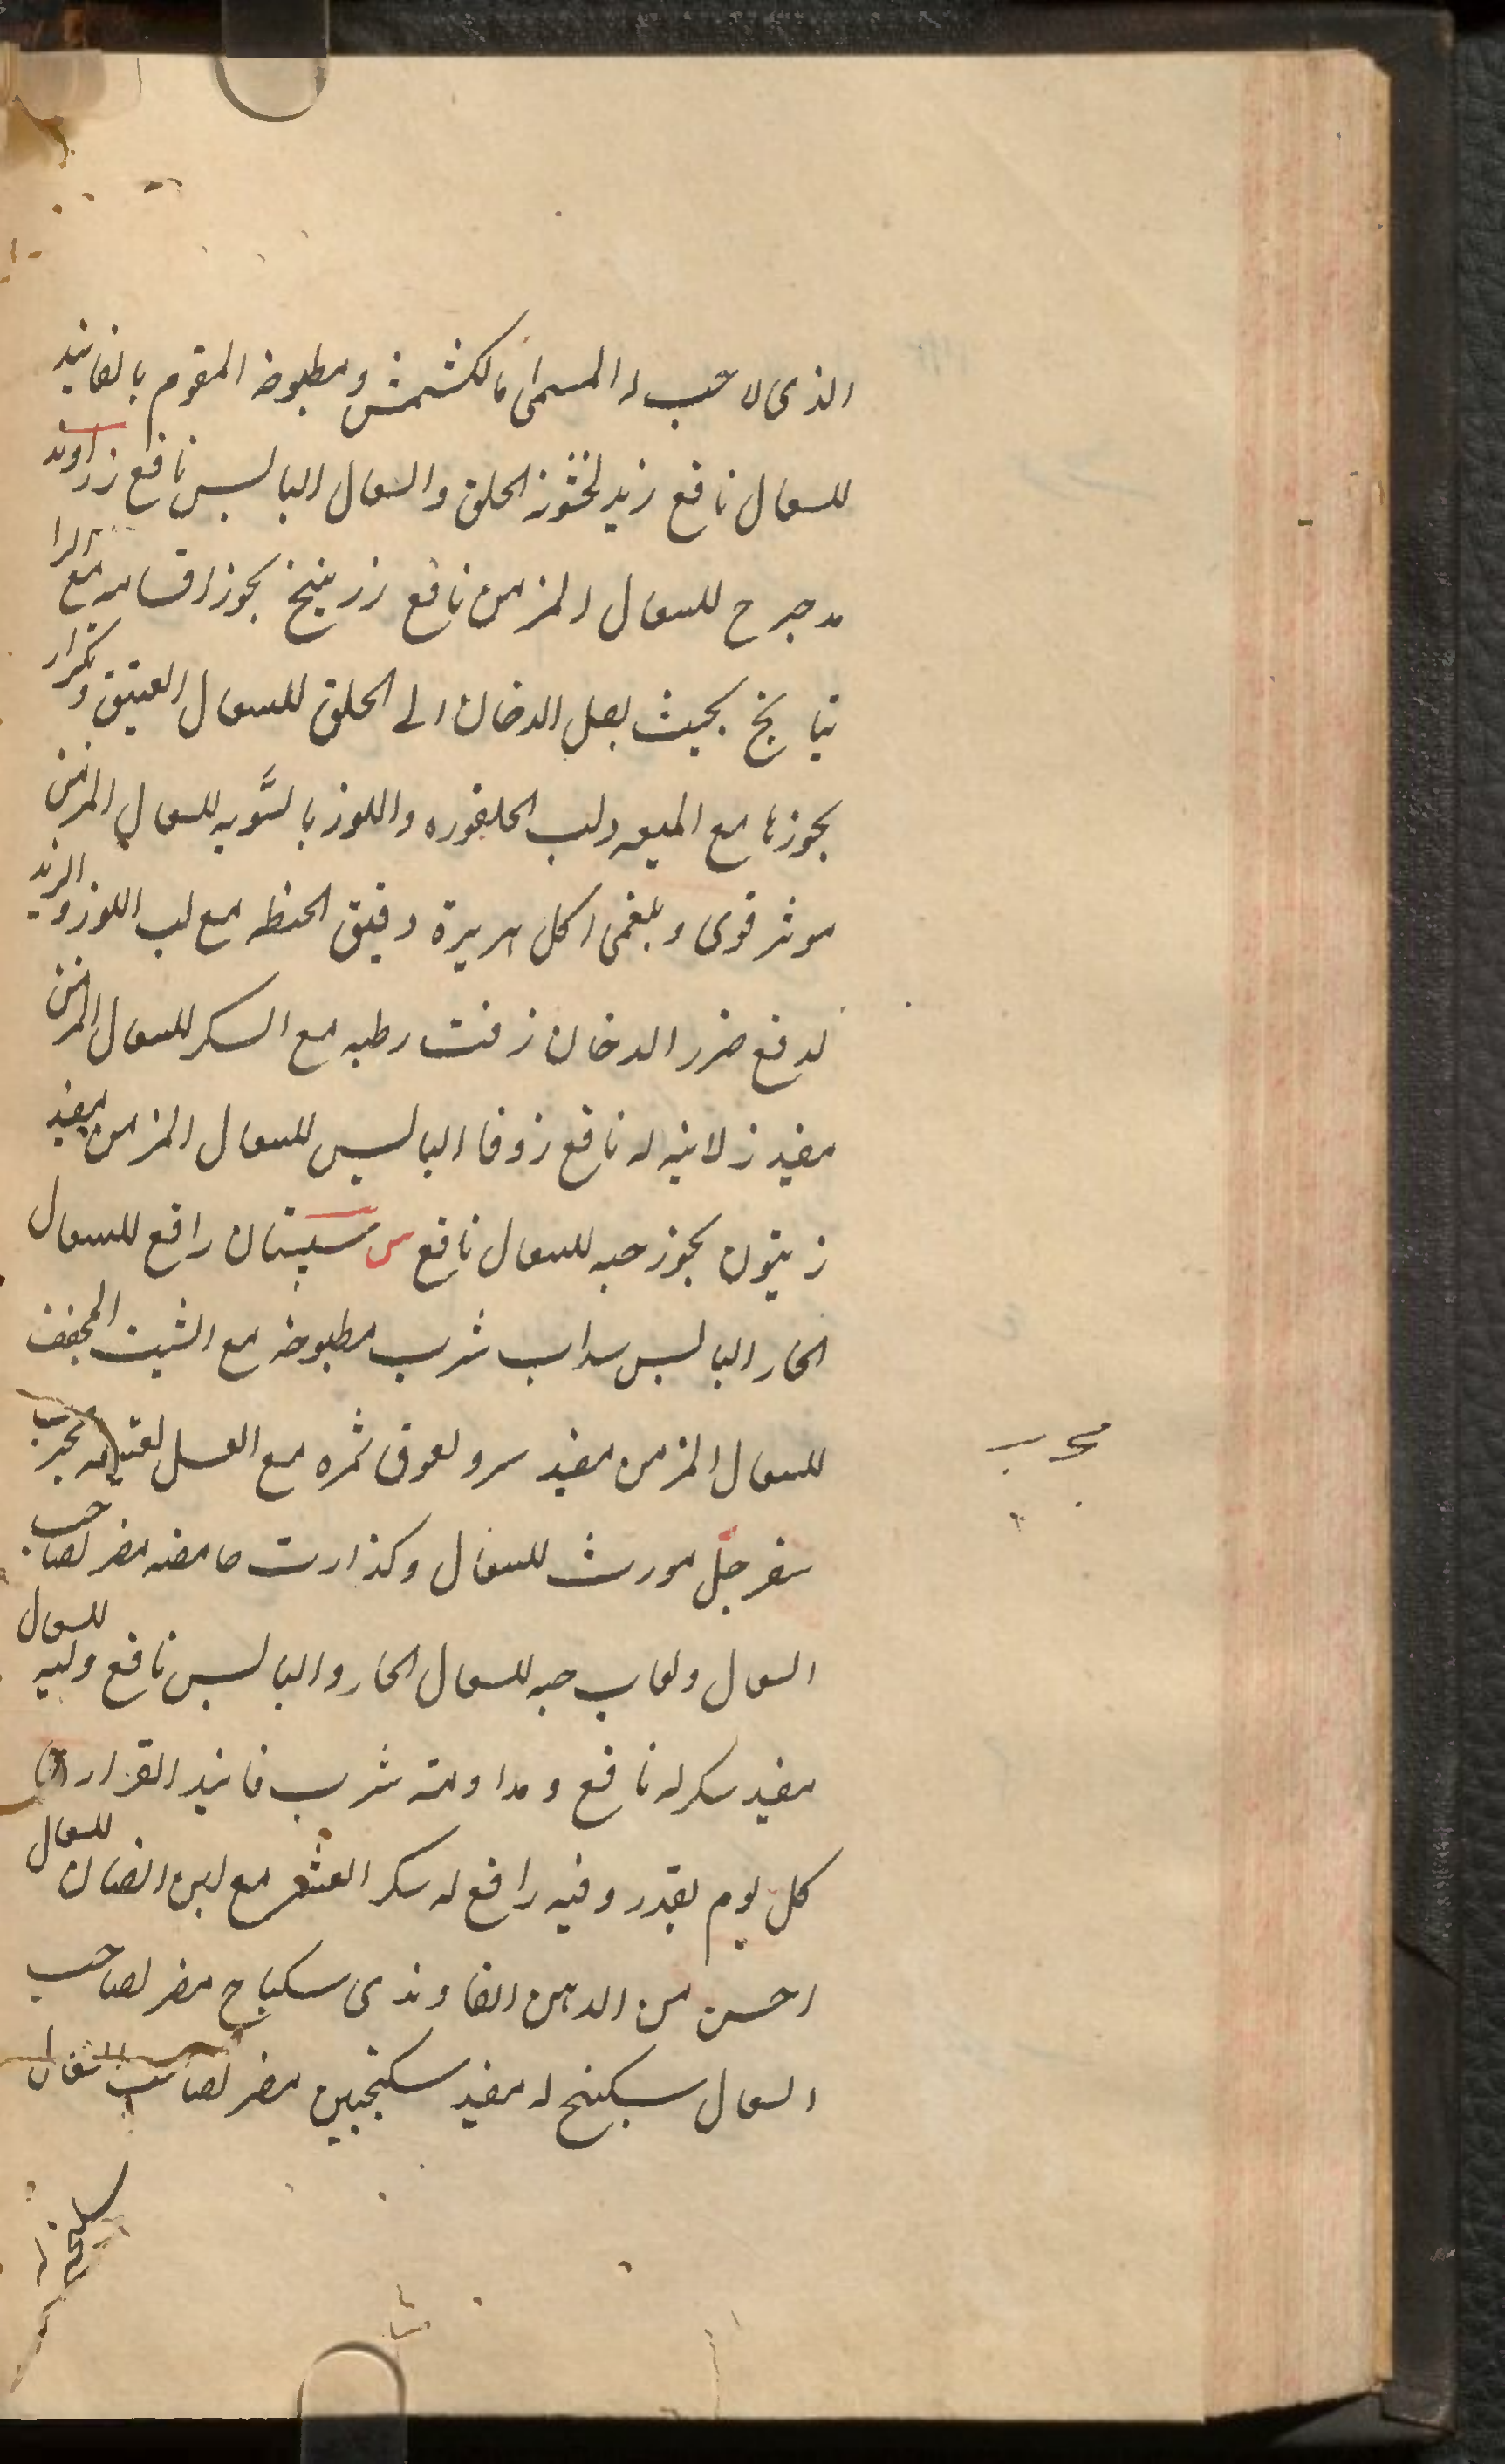 الذى لا حب له المسمى بالكشمش ومطبوخه المقوم بالفانيد
للسعال نافع زبد لخشونة الحلق والسعال اليابس نافع زراوند
مدحرج للسعال المزمن نافع زرنيخ بخور اقسامه مع الرا
تيانج بحيث يصل الدخان الى الحلق للسعال العتيق وتكرار
بخورها مع الميعه ولب واللوز بالسويه للسعال المزمن
موثر قوى وبلغمى اكل هريرة دقيق الحنطه مع لب اللوز والزبد
لدفع ضرر الدخان زفت رطبه مع السكر للسعال المزمن
مفيد زلابيه له نافع زوفا اليابس للسعال المزمن مفيد
زيتون بخور حبه للسعال نافع س سپستان رافع للسعال
الحار اليابس سداب شرب مطبوخه مع الشبت المجفف
للسعال المزمن مفيد سرو لعوق ثمره مع العسل لعتيقه مجرب
سفرجل مورث للسعال وكذا رب حامضه مضر لصاحب
السعال ولعاب حبه للسعال الحار واليابس نافع ولبه للسعال
مفيد سكر له نافع ومداومة شرب فانيد القرارى
كل يوم بقدر وقيه رافع له سكر العشر مع لبن الضان للسعال
احسن من الدهن الفاوندى سكباج مضر لصاحب
السعال سكبينج له مفيد سكنجبين مضر لصاحب السعال
مجرب